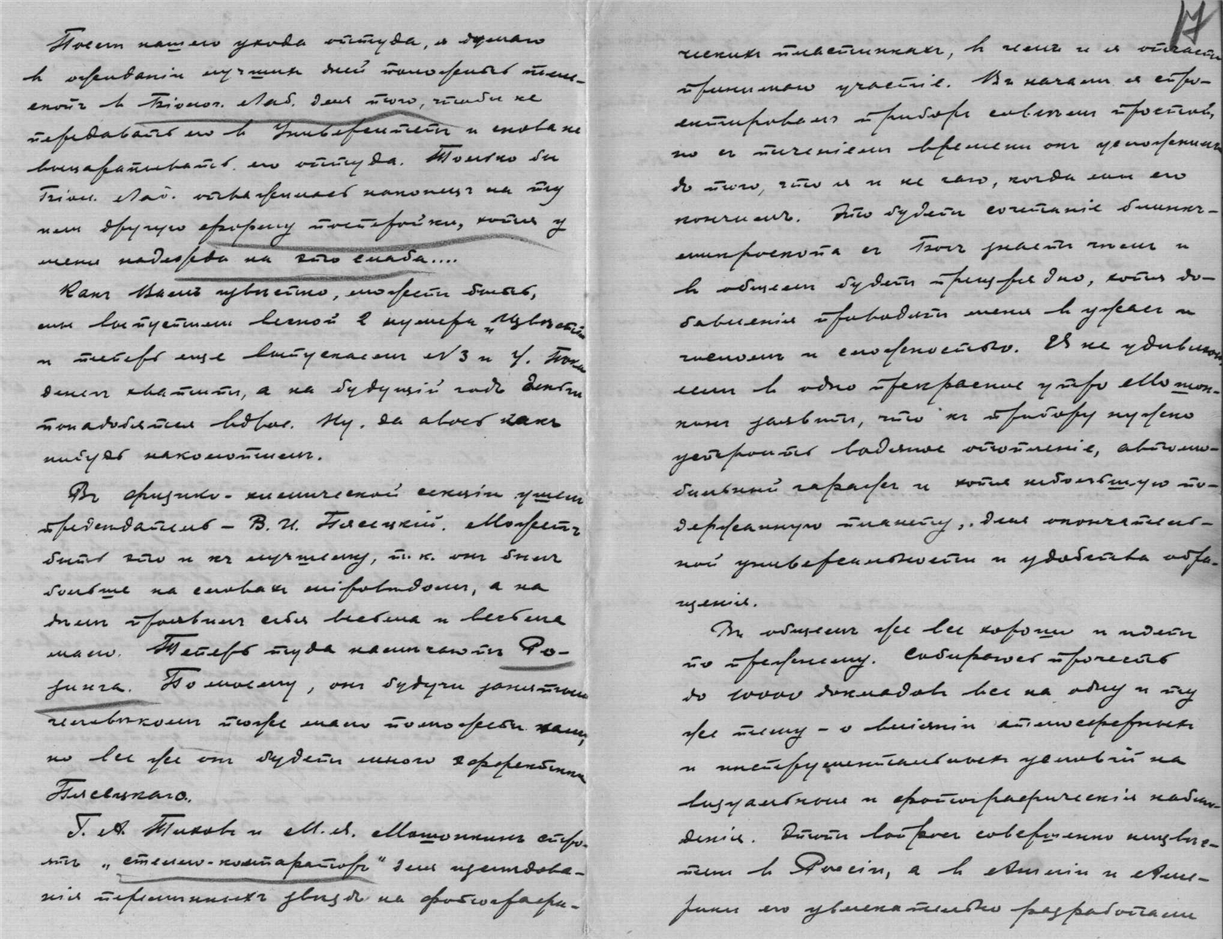 После нашего ухода оттуда, я думаю
въ ожиданіи лучшихъ дней положить теле-
скопъ въ Біолог. Лаб. для того, чтобы не
передавать его въ Университетъ и снова не
выцарапывать его оттуда. Только бы
Біол. Лаб. отважилась наконецъ на ту
или другую форму постройки, хотя у
меня надежда на это слаба....
Какъ Вамъ извѣстно, можетъ быть,
мы выпустили весной 2 нумера „Извѣстій
и теперь еще выпускаемъ №3 и 4. Пока
денегъ хватитъ, а на будущій годъ деньги
понадобятся вдвое. Ну, да авось какъ
нибудь наколотимъ.
Въ физико-химической секціи ушелъ
предсѣдатель – В. И. Плесецкій. Можетъ
быть это и къ лучшему, т. к. онъ былъ
больше на словахъ міроведомъ, а на
дѣлѣ проявилъ себя весьма и весьма
мало. Теперь туда намѣчаютъ Ро-
зинга. По моему, онъ будучи занятымъ
человѣкомъ тоже мало поможетъ намъ,
но все же онъ будетъ много эффектнѣе
Плесецкаго.
Г. А. Тиховъ и М. Я. Мошонкинъ стро-
ятъ „стелло-компараторъ" для изслѣдова-
нія перемѣнныхъ звѣздъ на фотографи-
17
ческихъ пластинкахъ, въ чемъ и я отчасти
принимаю участіе. Въ началѣ я спро-
ектировалъ приборъ совсѣмъ простой,
но съ теченіемъ времени онъ усложнился
до того, что я и не чаю, когда мы его
кончимъ. Это будетъ сочетаніе блинкъ-
микроскопа съ Богъ знаетъ чѣмъ и
въ общемъ будетъ прещѣдно, хотя до-
бавленія приводятъ меня въ ужасъ и
числомъ и сложностью. Я не удивлюсь
если въ одно прекрасное утро Мошон-
кинъ заявитъ, что къ прибору нужно
устроить водяное отопленіе, автомо-
бильный гаражъ и хотя небольшую по-
держанную планету, для окончатель-
ной универсальности и удобства обра-
щенія.
Въ общемъ же все хорошо и идетъ
по прежнему. Собираюсь прочесть
до 10000 докладовъ все на одну и ту
же тему – о вліяніи атмосферныхъ
и инструментальныхъ условій на
визуальныя и фотографическія наблю-
денія. Этотъ вопросъ совершенно неизвѣс-
тенъ въ Россіи, а въ Англіи и Аме-
рикѣ его увлекательно разработали